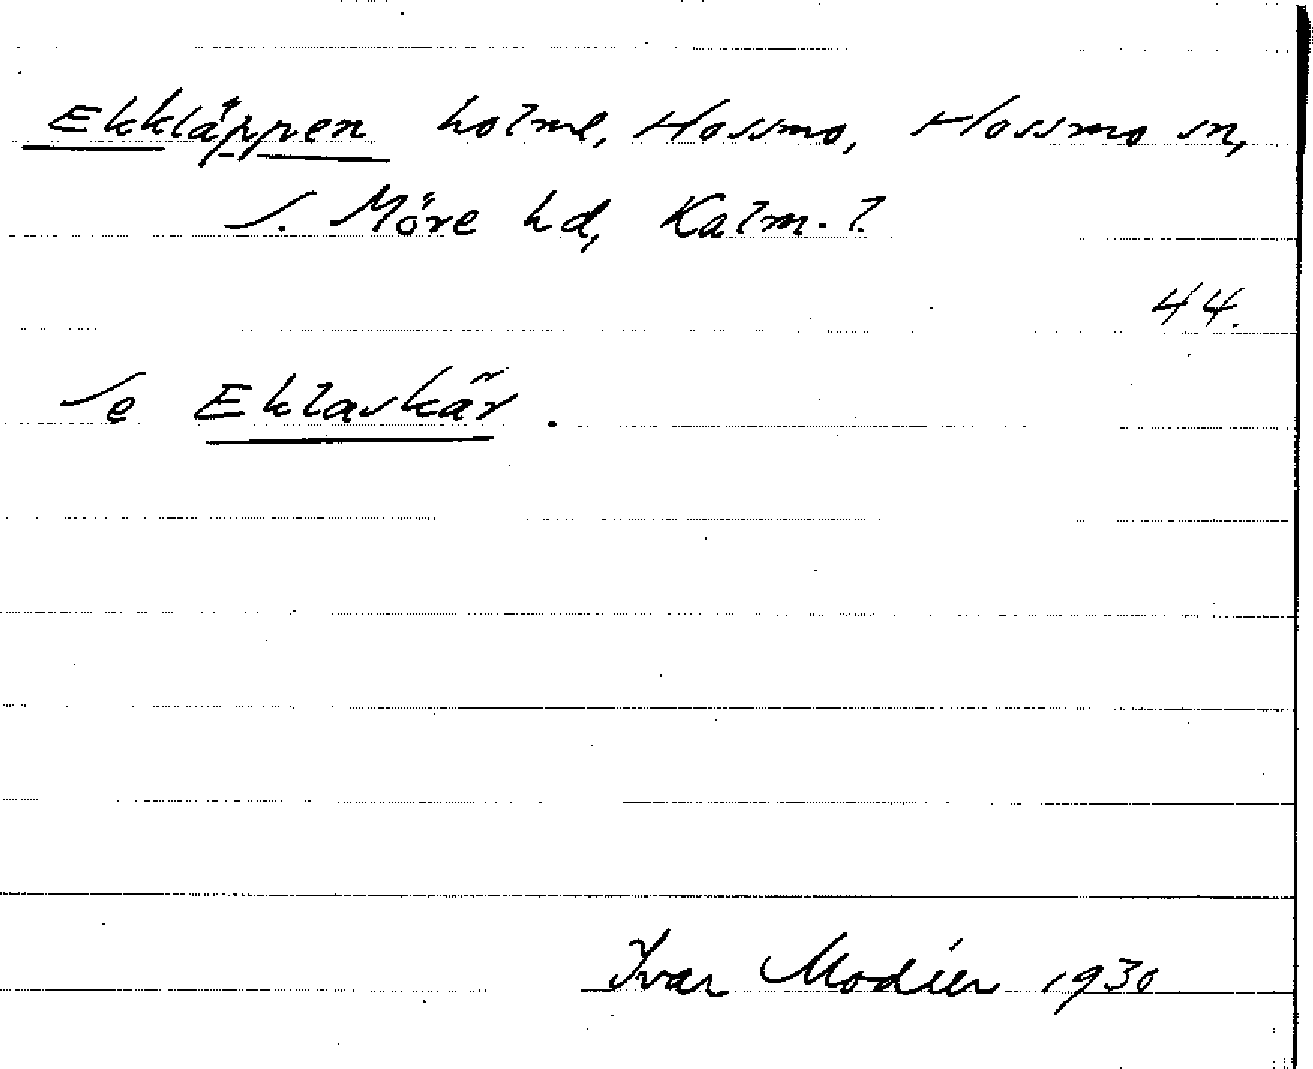 Ekkläppen holme, Hossmo, Hossmo sn,
S. Möre hd, Kalm. l.
44.
Se Eklaskär.
Ivar Modéer 1930